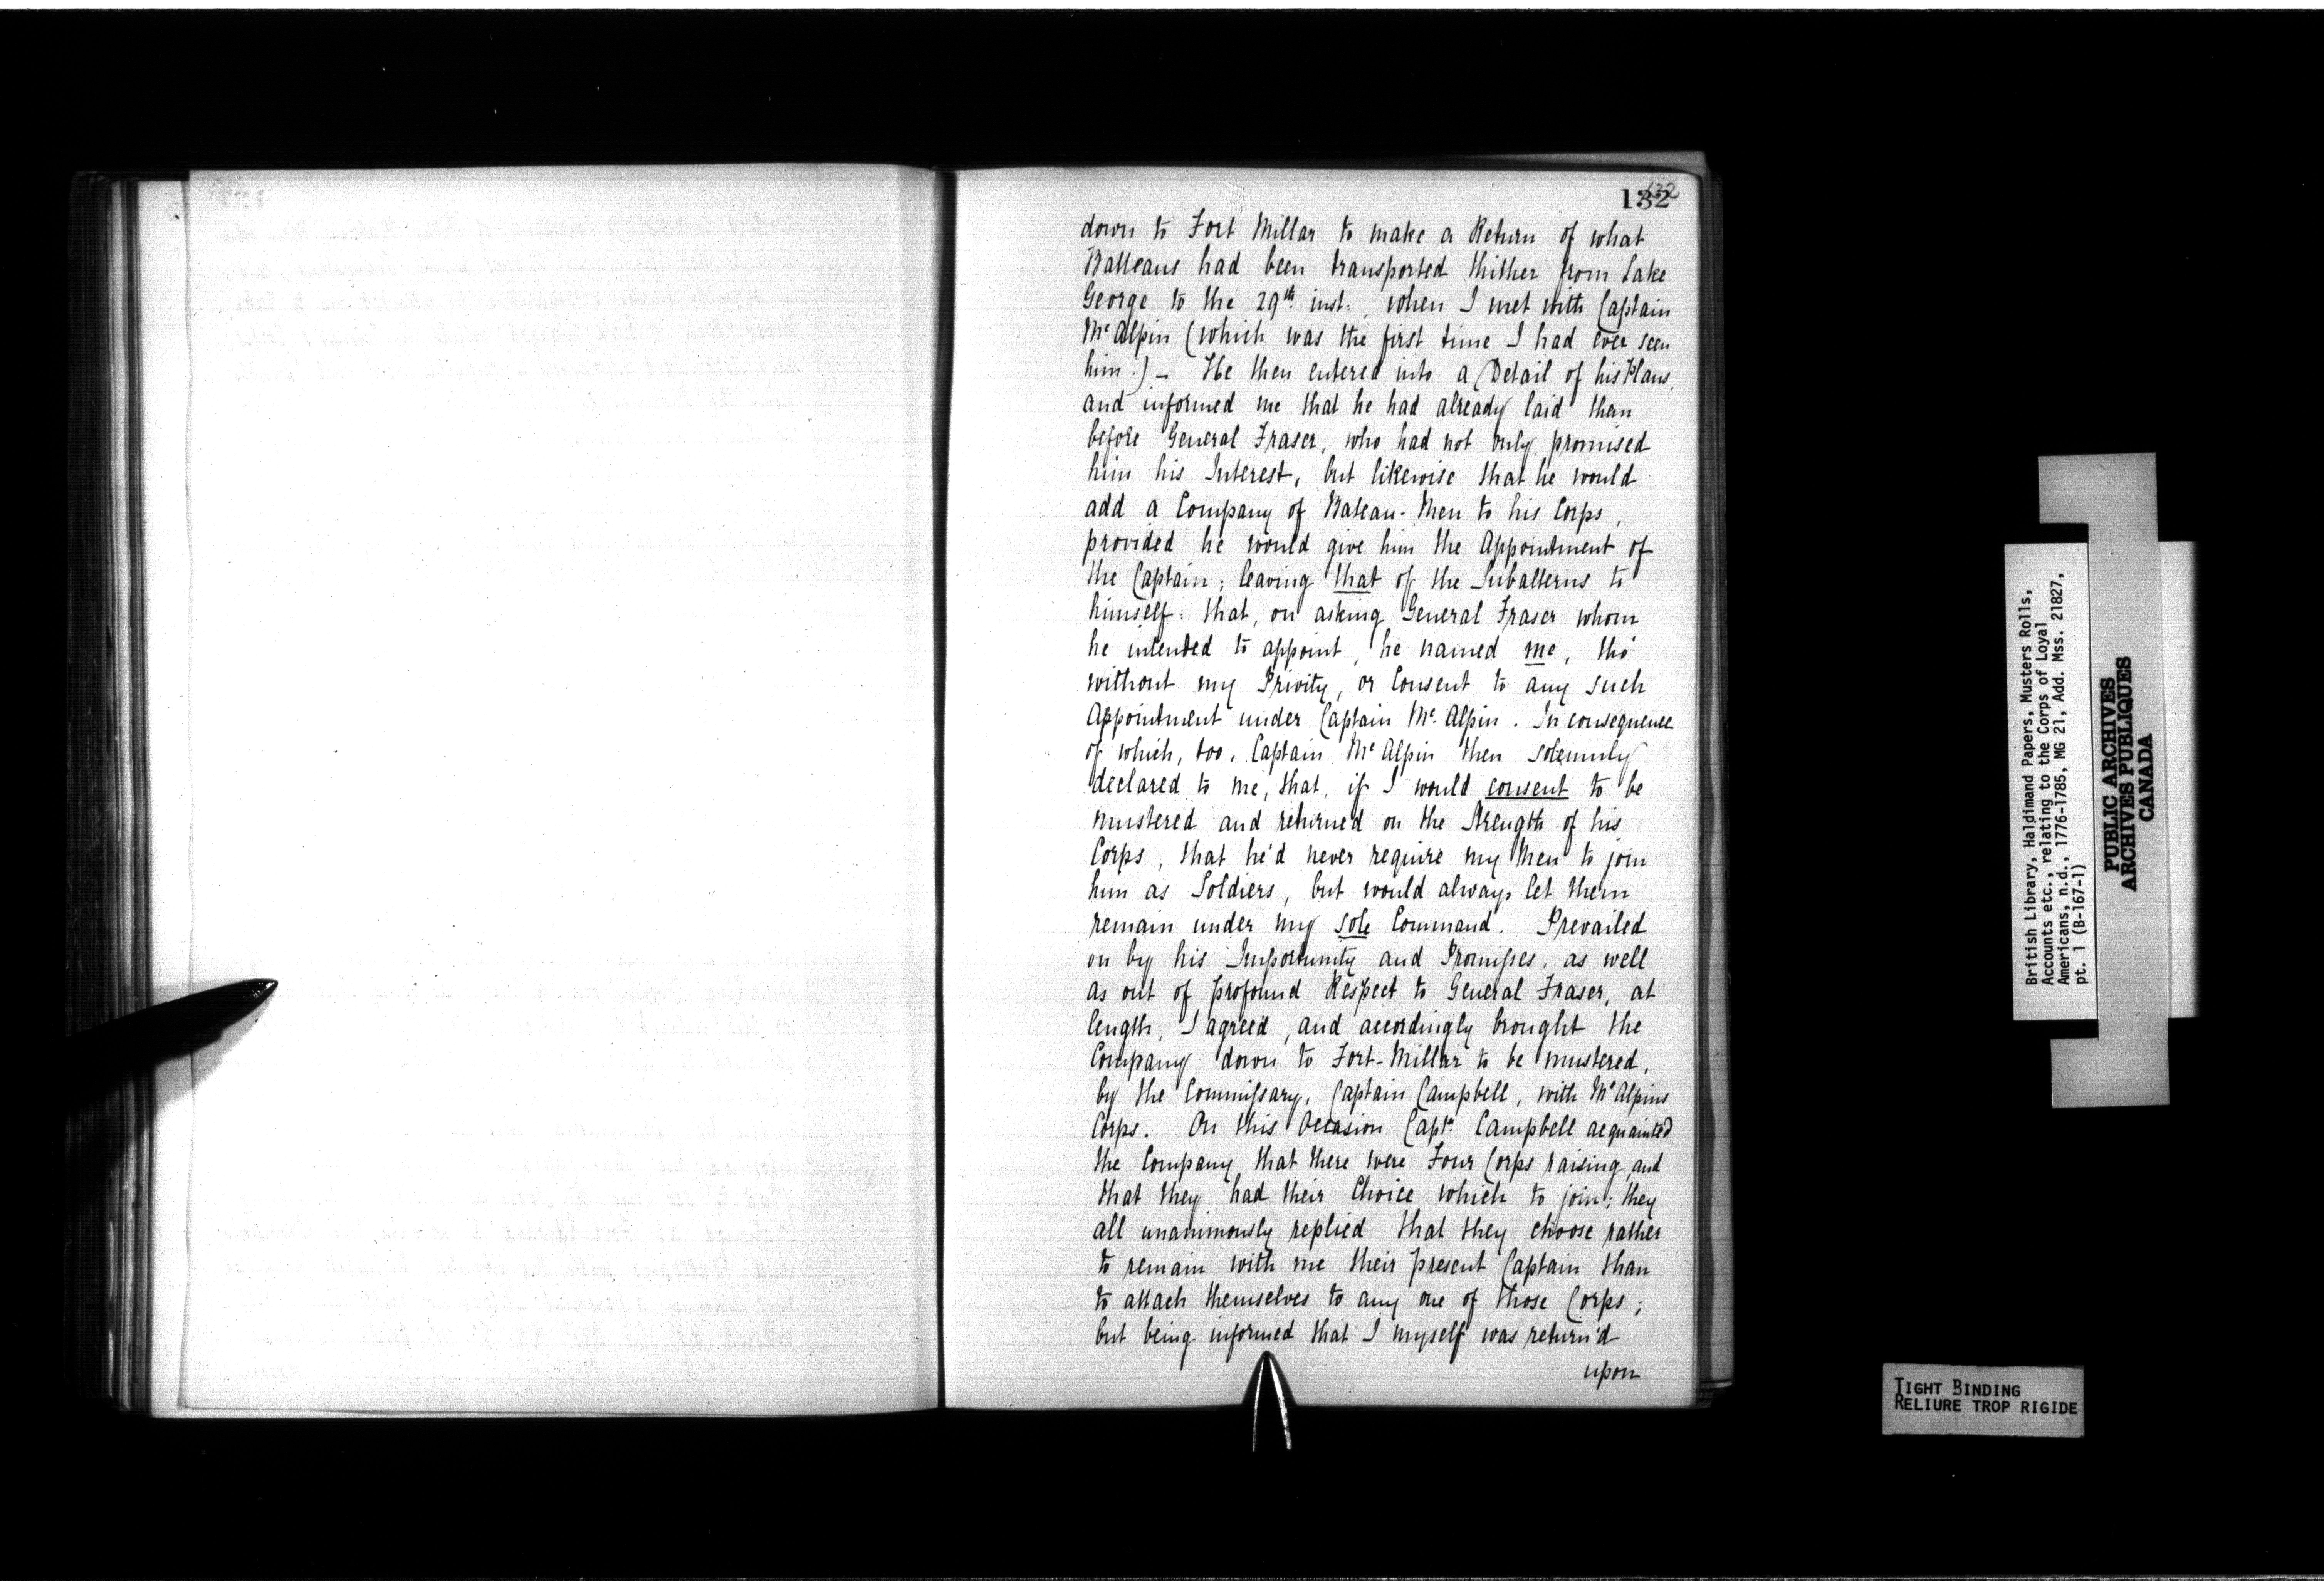 132
132
down to Fort Millar to make a Return of what
Batteaus had been transported thither from Lake
George to the 29th inst:, when I met with Captain
Mc Alpin (which was the first time I had ever seen
him.) – He then entered into a Detail of his Plans,
and informed me that he had already laid them
before General Fraser, who had not only promised
him his Interest, but likewise that he would
add a Company of Bateau-Men to his Corps,
provided he would give him the Appointment of
the Captain; leaving that of the Subalterns to
himself: that, on asking General Fraser whom
he intended to appoint, he named me, tho'
without my Privity, or Consent to any such
Appointment under Captain Mc Alpin. In consequence
of which, too, Captain Mc Alpin then solemnly
declared to me, that, if I would consent to be
mustered and returned on the Strength of his
Corps, that he'd never require my Men to join
him as Soldiers, but would always let them
remain under my sole Command. Prevailed
on by his Importunity and Promises, as well
as out of profound Respect to General Fraser, at
length, I agreed, and accordingly brought the
Company down to Fort-Millar to be mustered,
by the Commissary, Captain Campbell, with Mc Alpins
Corps. On this Occasion Captn Campbell acquainted
the Company that there were Four Corps raising, and
that they had their Choice which to join; they
all unanimously replied that they choose rather
to remain with me their present Captain than
to attach themselves to any one of those Corps;
but being informed that I myself was return'd
upon
British Library, Haldimand Papers, Musters Rolls,
Accounts etc., relating to the Corps of Loyal
Americans, n.d., 1776-1785, MG 21, Add. Mss. 21827,
pt. 1 (B-167-1)
PUBLIC ARCHIVES
ARCHIVES PUBLIQUES
CANADA
TIGHT BINDING
RELIURE TROP RIGIDE